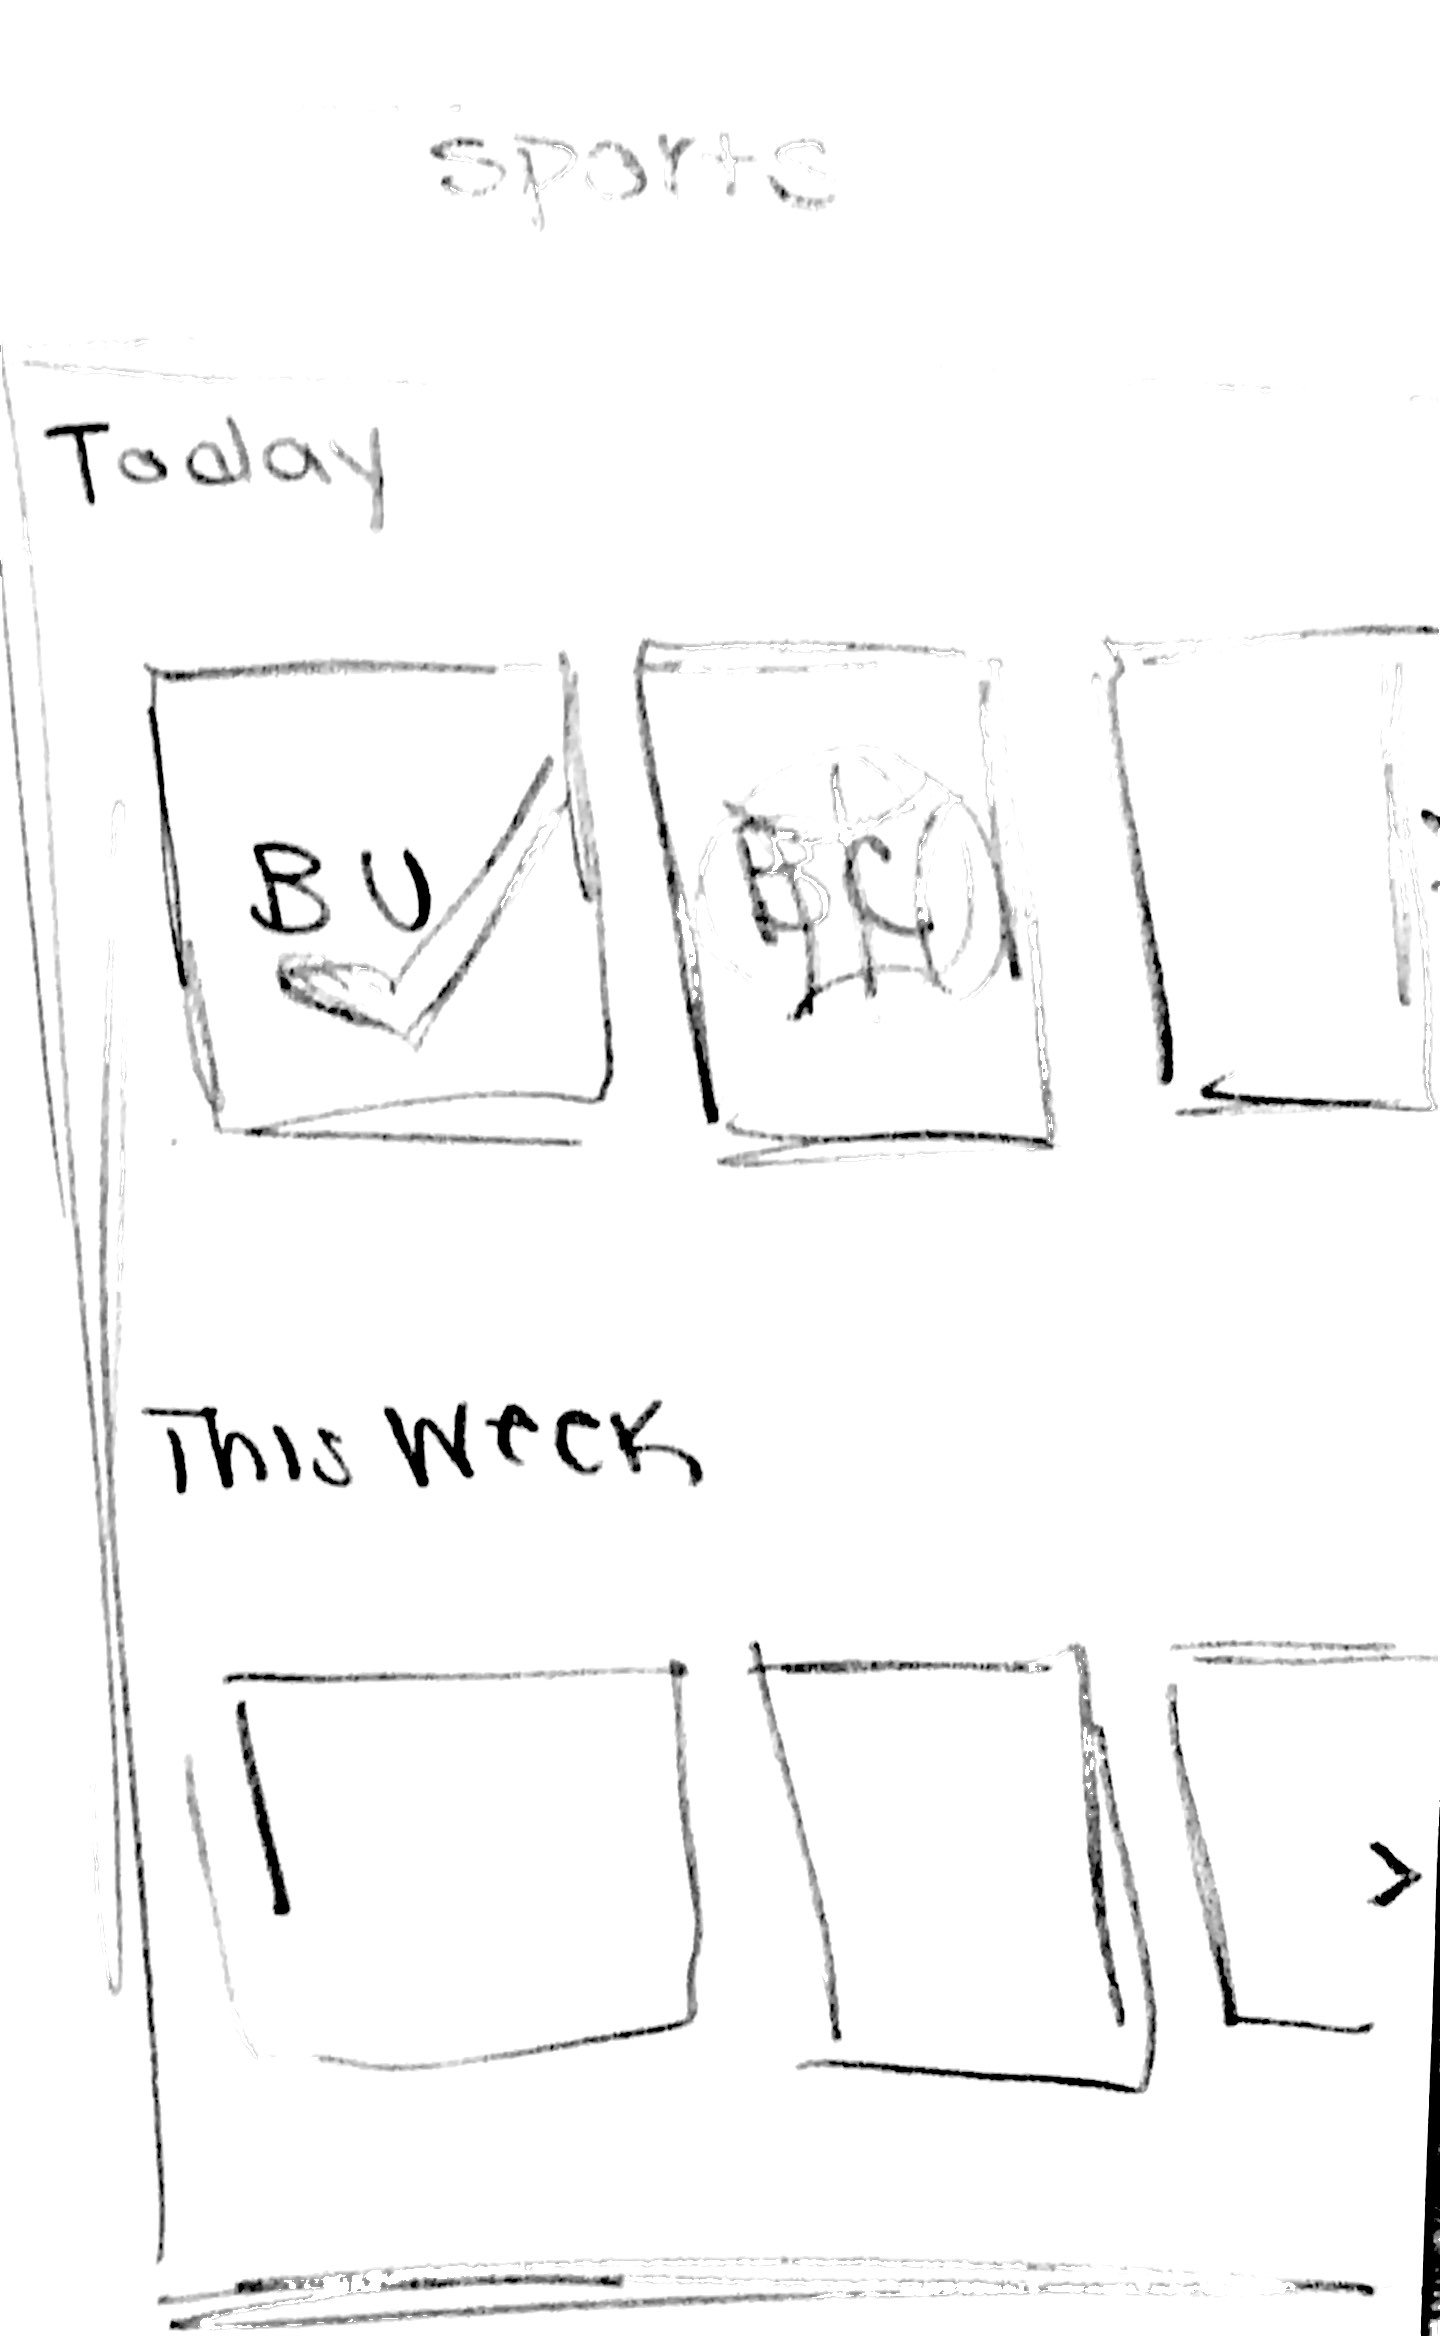 sports
Today
BU
BC
This Week
>